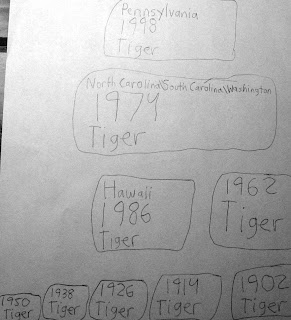 Pennsylvania
1998
Tiger
North Carolina\South Carolina\Washington
1974
Tiger
Hawaii
1986
Tiger
1962
Tiger
1950
Tiger
1938
Tiger
1926
Tiger
1914
Tiger
1902
Tiger